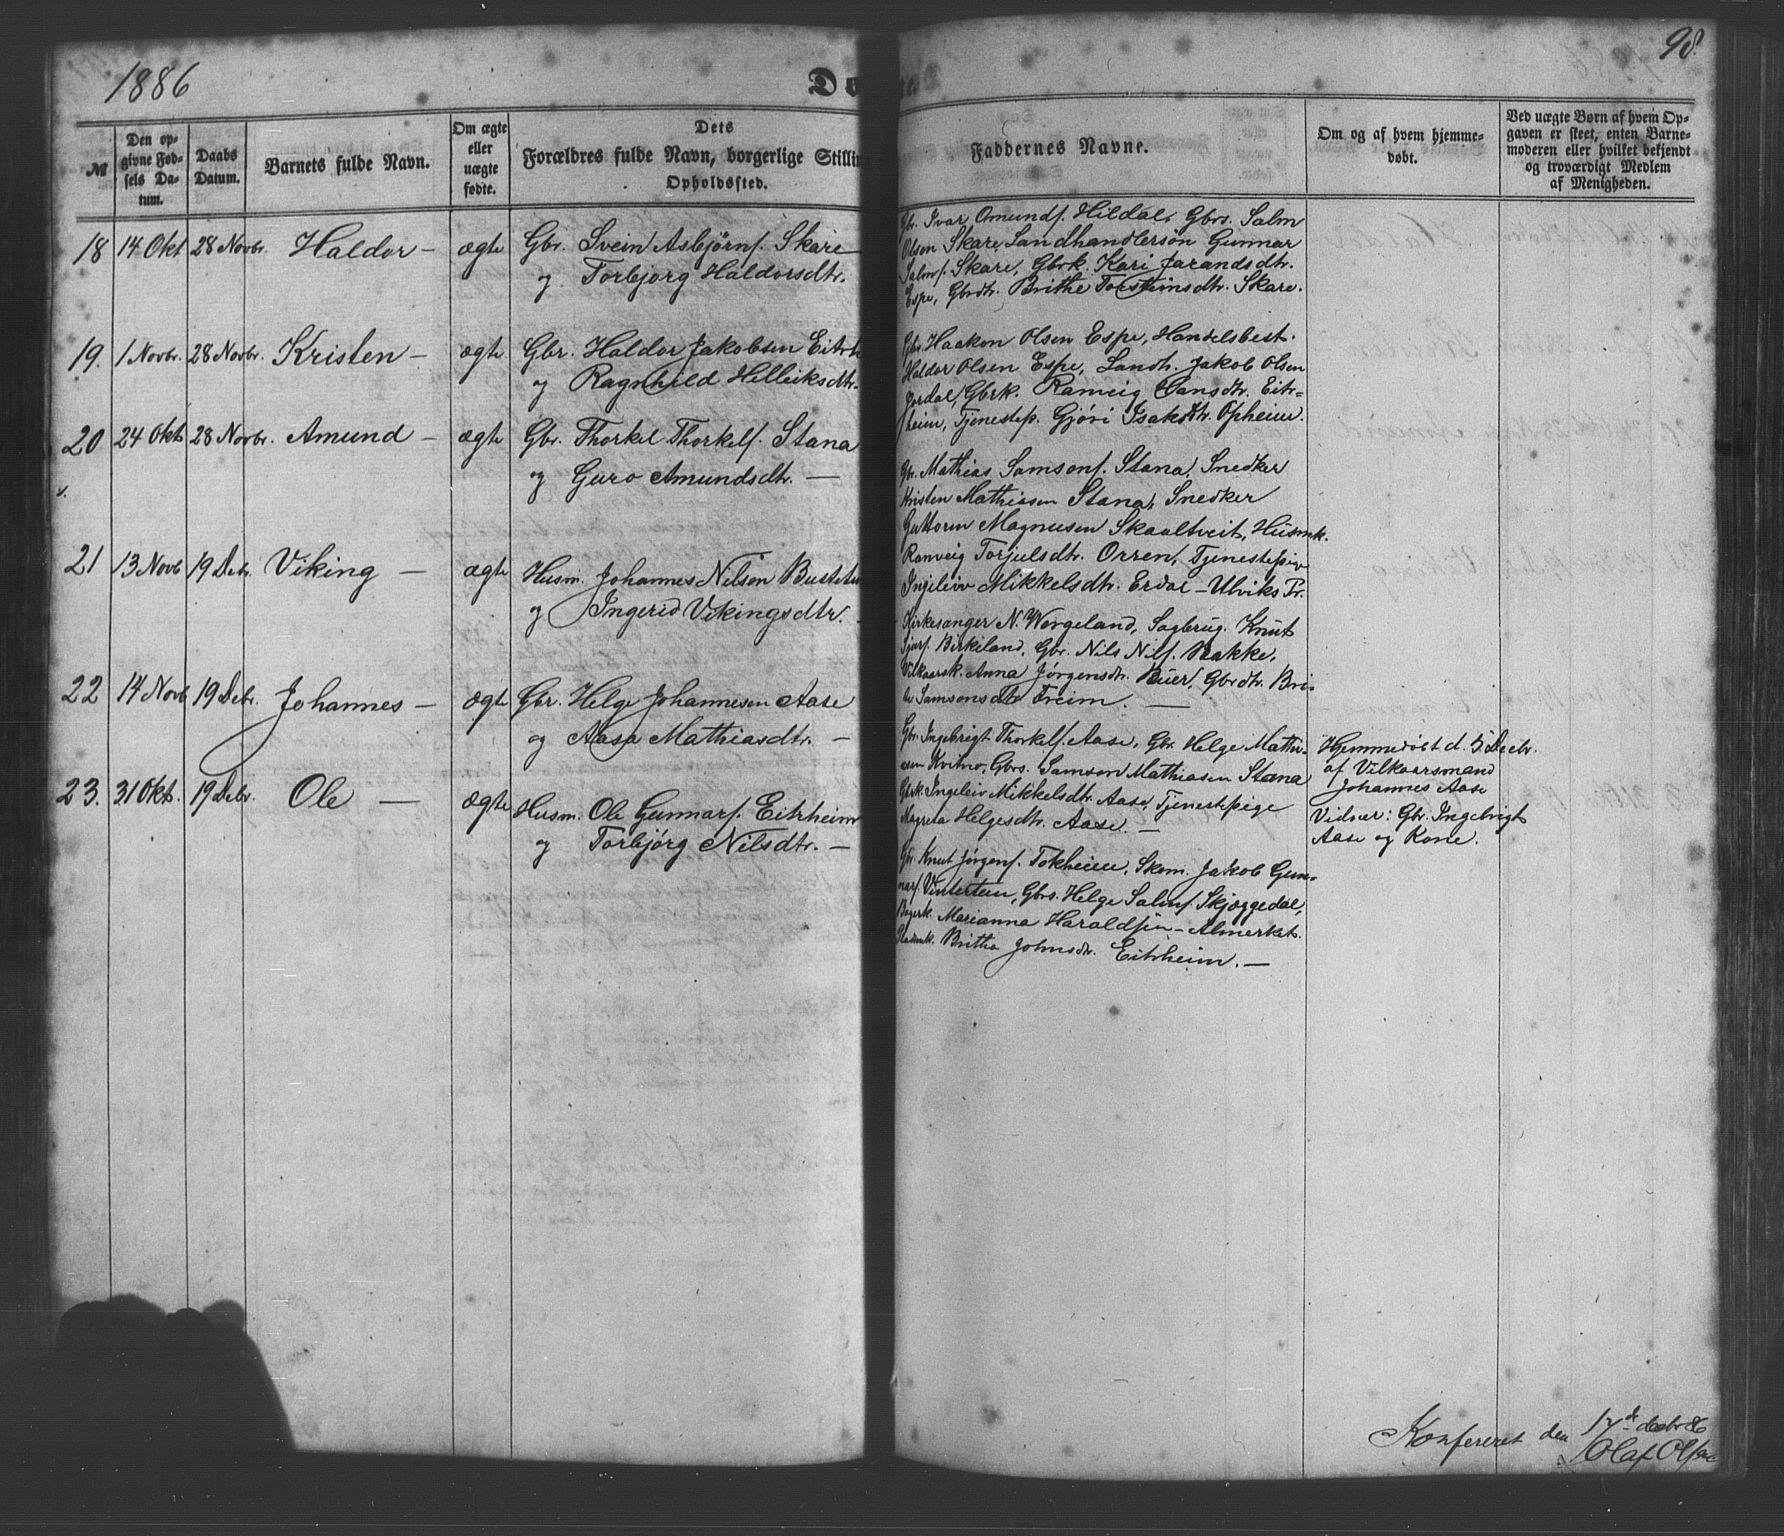 1886
98.
№
Den opgivne Fødsels Datum.
Daabs Datum.
Barnets fulde Navn.
Om ægte eller uægte fødte.
Dets Forældres fulde Navn, borgerlige Stilli Opholdssted.
Faddernes Navne.
Om og af hvem hjemmedøbt.
Ved uægte Børn af hvem Opgaven er skeet, enten Barnemoderen eller hvilket bekjendt og troværdigt Medlem af Menigheden.
18 14 Okt 28 Novbr. Haldor – ægte Gbr. Svein Asbjørns. Skare
og Torbjørg Haldorsdtr.
Gbr. Ivar Omunds. Hildal, Gbrs. Salm
Olsen Skare, Landhandlersøn Gunnar
Salms. Skare, Gbrk. Kari Jarandsdtr.
Espe, Gbrdtr. Brithe Torsteinsdtr. Skare.
19. 1 Novbr. 28 Novbr. Kristen – ægte Gbr. Haldor Jakobsen Eitrh
og Ragnhild Helleiksdtr.
Gbr. Haakon Olsen Espe, Handelsbest.
Haldor Olsen Espe, Landh. Jakob Olsen
Jordal, Gbrk. Ranveig Hansdtr. Eitr-
heim, Tjenestep. Gjøri Isaksdtr. Opheim.
20 24 Okt 28 Novbr. Amund – ægte Gbr. Thorkel Thorkels. Stana
og Guro Amundsdtr. —
Gbr. Mathias Samsons. Stana, Snedker
Kristen Mathiasen Stana, Snedker
Guttorm Magnusen Skaaltveit, Husmk.
Ranveig Torjulsdtr. Orren, Tjenestepige
Ingeleiv Mikkelsdtr. Erdal – Ulviks Pr.
21 13 Novb 19 Debr. Viking – ægte Husm. Johannes Nilson Bustetu
og Ingerid Vikingsdtr.
Kirkesanger N. Wergeland, Sagbrug. Knut
Sjurs. Birkeland, Gbr. Nils Nils. Bakke,
Vilkaarsk. Anna Jørgensdtr. Buer, Gbrdtr. Bri-
te Samsonsdtr. Freim. —
22 14 Novb 19 Debr. Johannes – ægte Gbr. Helge Johannesen Aase
og Aasa Mathiasdtr. –
Gbr. Ingebrigt Thorkels. Aase, Gbr. Helge Mathi-
asen Kvitno, Gbrs. Samson Mathiasen Stana
Gbrk. Ingeleiv Mikkelsdtr. Aase, Tjenestepige
Magreta Helgesdtr. Aase. –
Hjemmedøbt d. 5 Decbr.
af Vilkaarsmand
Johannes Aase
Vidner: Gbr. Ingebrigt
Aase og Kone.
23. 31 Okt. 19 Debr. Ole – ægte Husm. Ole Gunnars. Eitrheim
og Torbjørg Nilsdtr. –
Gbr. Knut Jørgens. Tokheim, Skom. Jakob Gun-
nars. Vintertun, Gbrs. Helge Salms. Skjæggedal,
Bagerk. Marianna Haraldsen – Almerket.
Britha Johnsdtr. Eitrheim. —
Konfereret den 17de decbr 86
Olaf Olsen